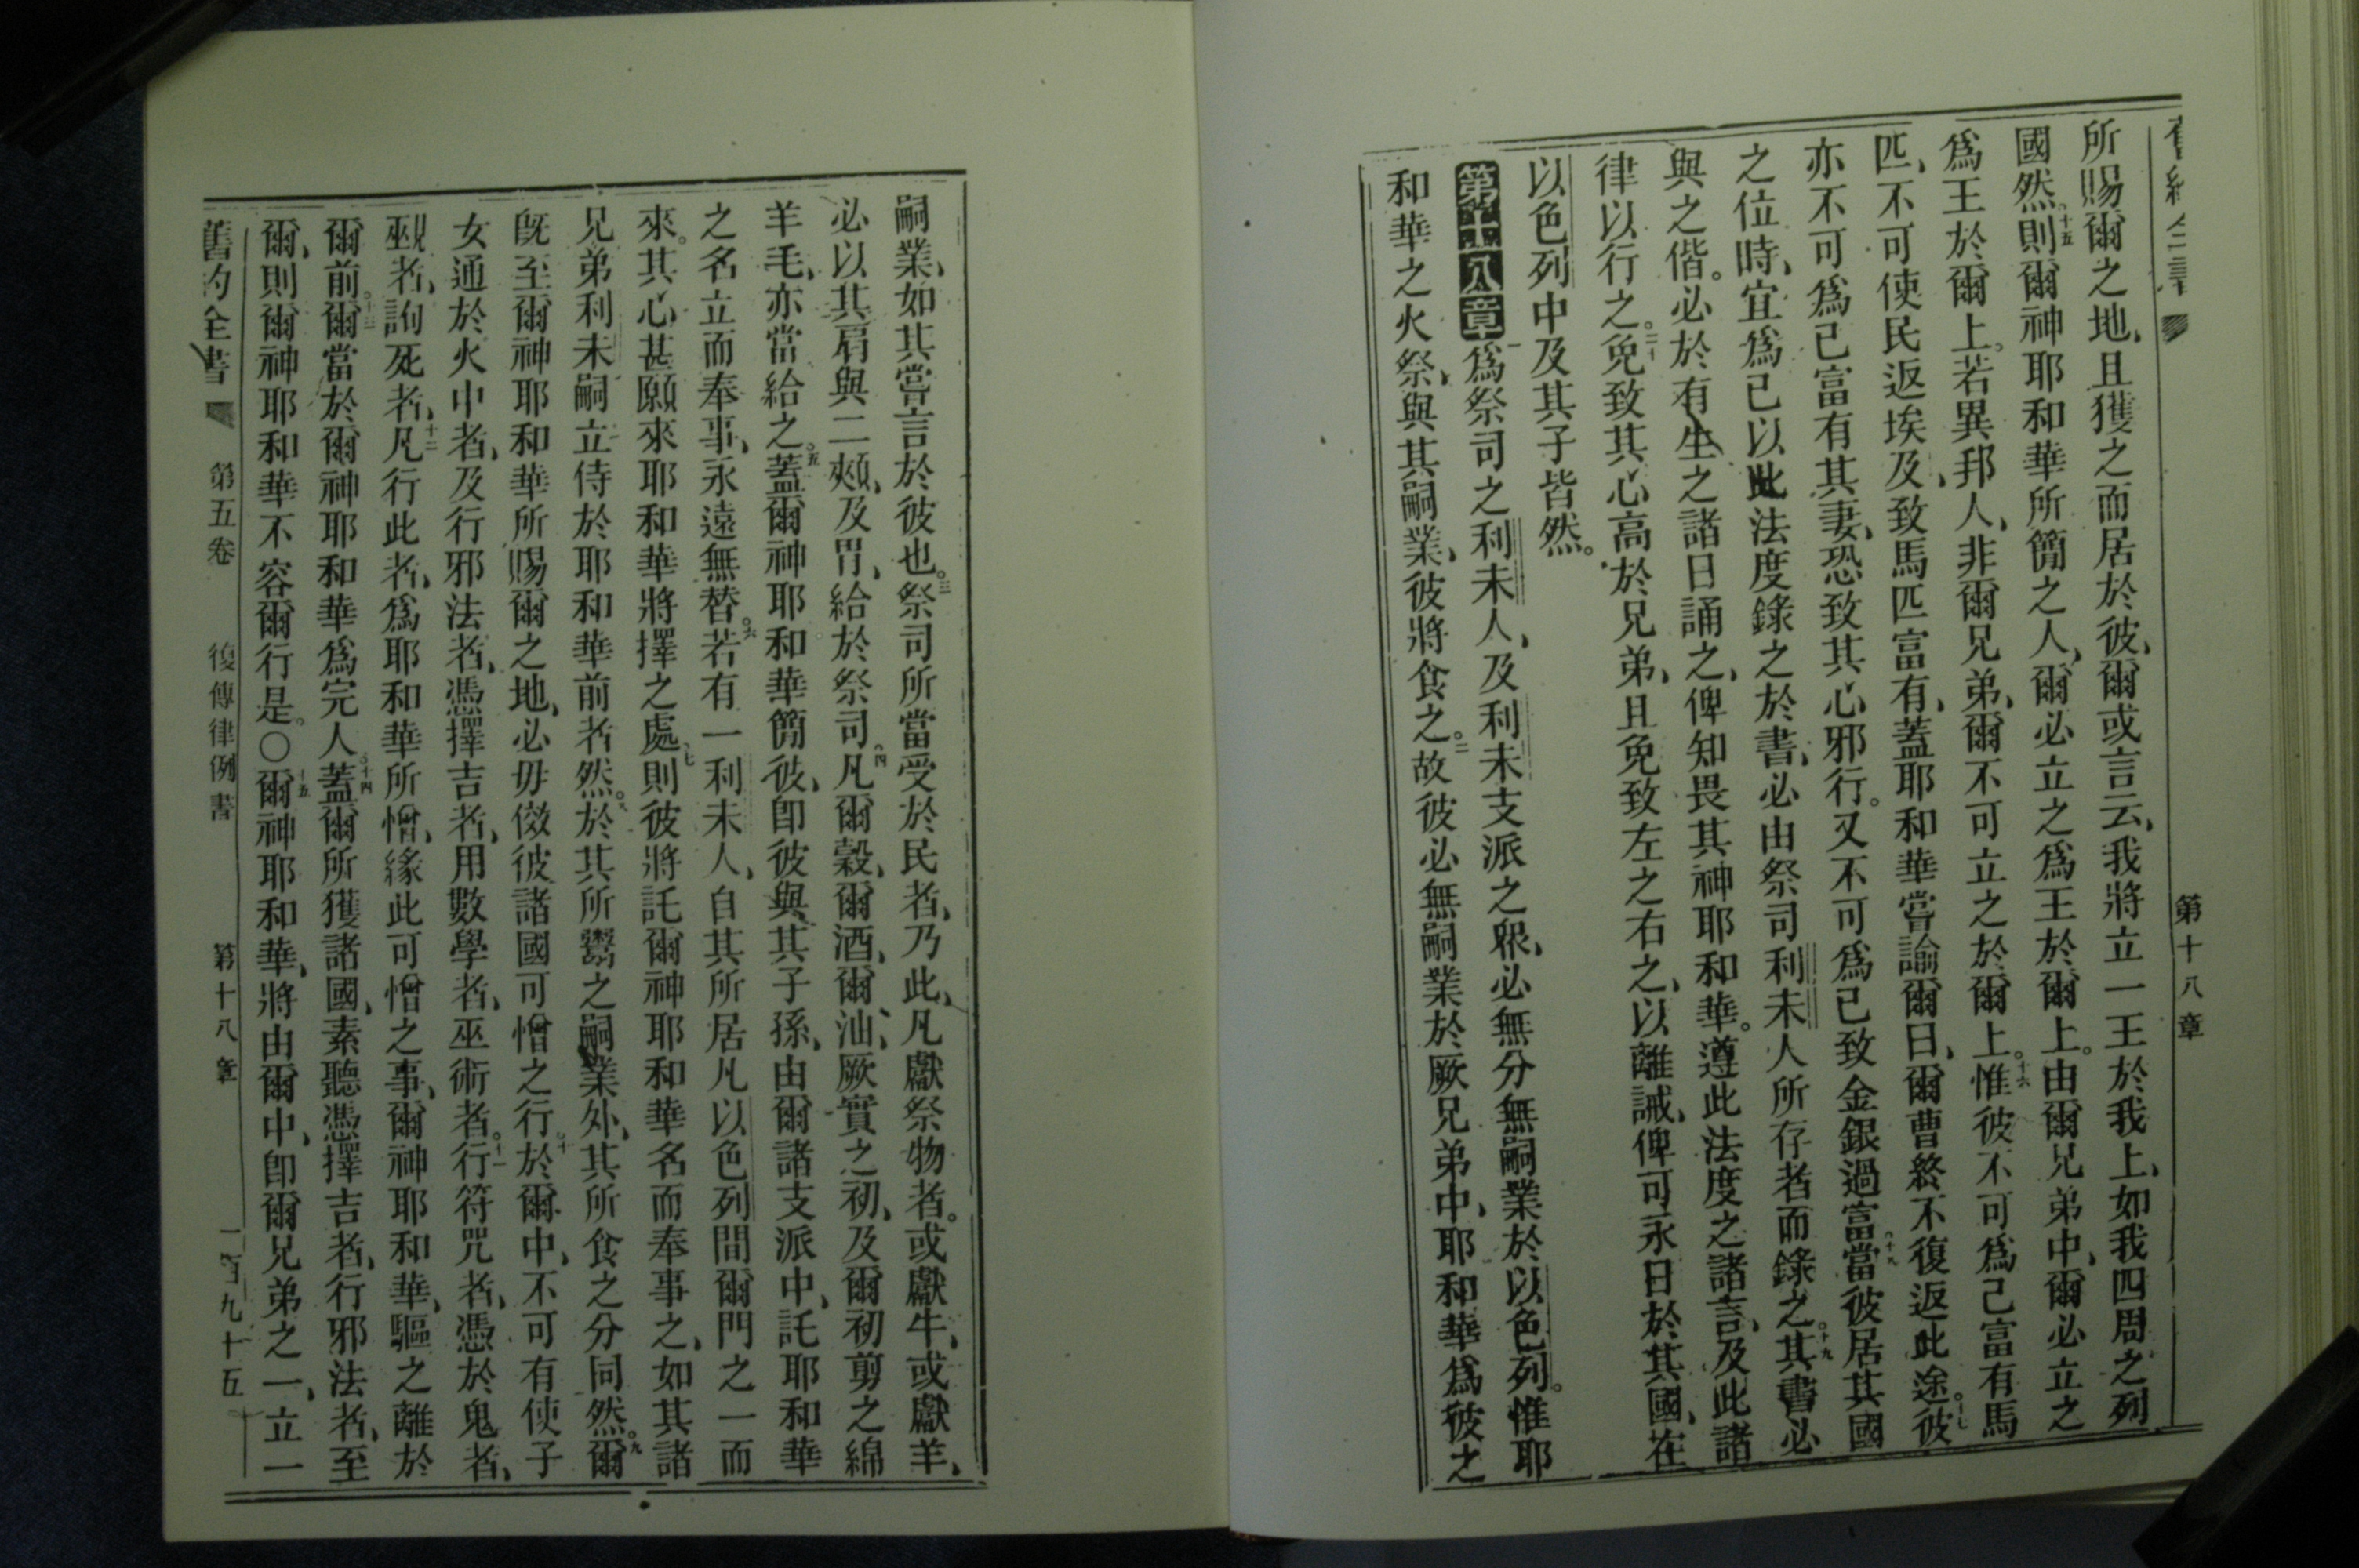 第十八章
所賜爾之地、且獲之而居於彼、爾或言云、我將立一王於我上、如我四周之列
國然、十五則爾神耶和華所簡之人、爾必立之爲王於爾上。由爾兄弟中、爾必立之
爲王於爾上。若異邦人、非爾兄弟、爾不可立之於爾上。十六惟彼不可爲己富有馬
匹、不可使民返埃及、致馬匹富有、蓋耶和華嘗諭爾曰、爾曹終不復返此途。十七彼
亦不可爲己富有其妻、恐致其心邪行。又不可爲己致金銀過富、十八當彼居其國
之位時、宜爲己以此法度錄之於書、必由祭司利未人所存者而錄之。十九其書必
與之偕。必於有生之諸日誦之、俾知畏其神耶和華。遵此法度之諸言、及此諸
律以行之。二十免致其心高於兄弟、且免致左之右之、以離誡、俾可永日於其國、在
以色列中及其子皆然。
第十八章 一爲祭司之利未人、及利未支派之眾、必無分無嗣業於以色列。惟耶
和華之火祭、與其嗣業、彼將食之。二故彼必無嗣業於厥兄弟中、耶和華爲彼之
嗣業、如其嘗言於彼也。三祭司所當受於民者、乃此、凡獻祭物者。或獻牛、或獻羊、
必以其肩與二頰、及胃、給於祭司。四凡爾穀、爾酒、爾油、厥實之初、及爾初剪之綿
羊毛、亦當給之。五蓋爾神耶和華簡彼、卽彼與其子孫、由爾諸支派中、託耶和華
之名立而奉事、永遠無替。六若有一利未人、自其所居凡以色列間爾門之一而
來。其心甚願來耶和華將擇之處、七則彼將託爾神耶和華名而奉事之、如其諸
兄弟利未嗣立侍於耶和華前者然。八於其所鬻之嗣業外、其所食之分同然。九爾
旣至爾神耶和華所賜爾之地、必毋傚彼諸國可憎之行、十於爾中、不可有使子
女通於火中者、及行邪法者、憑擇吉者、用數學者、巫術者。十一行符咒者、憑於鬼者、
覡者、詢死者、十二凡行此者、爲耶和華所憎、緣此可憎之事、爾神耶和華、驅之離於
爾前。十三爾當於爾神耶和華爲完人、十四蓋爾所獲諸國、素聽憑擇吉者、行邪法者、至
爾、則爾神耶和華不容爾行是。〇十五爾神耶和華、將由爾中、卽爾兄弟之一、立一
舊約全書 第五卷 復傳律例書 第十八章 一百九十五